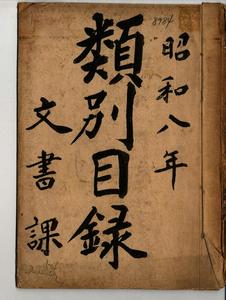 8984
昭和八年
類別目録
文書課